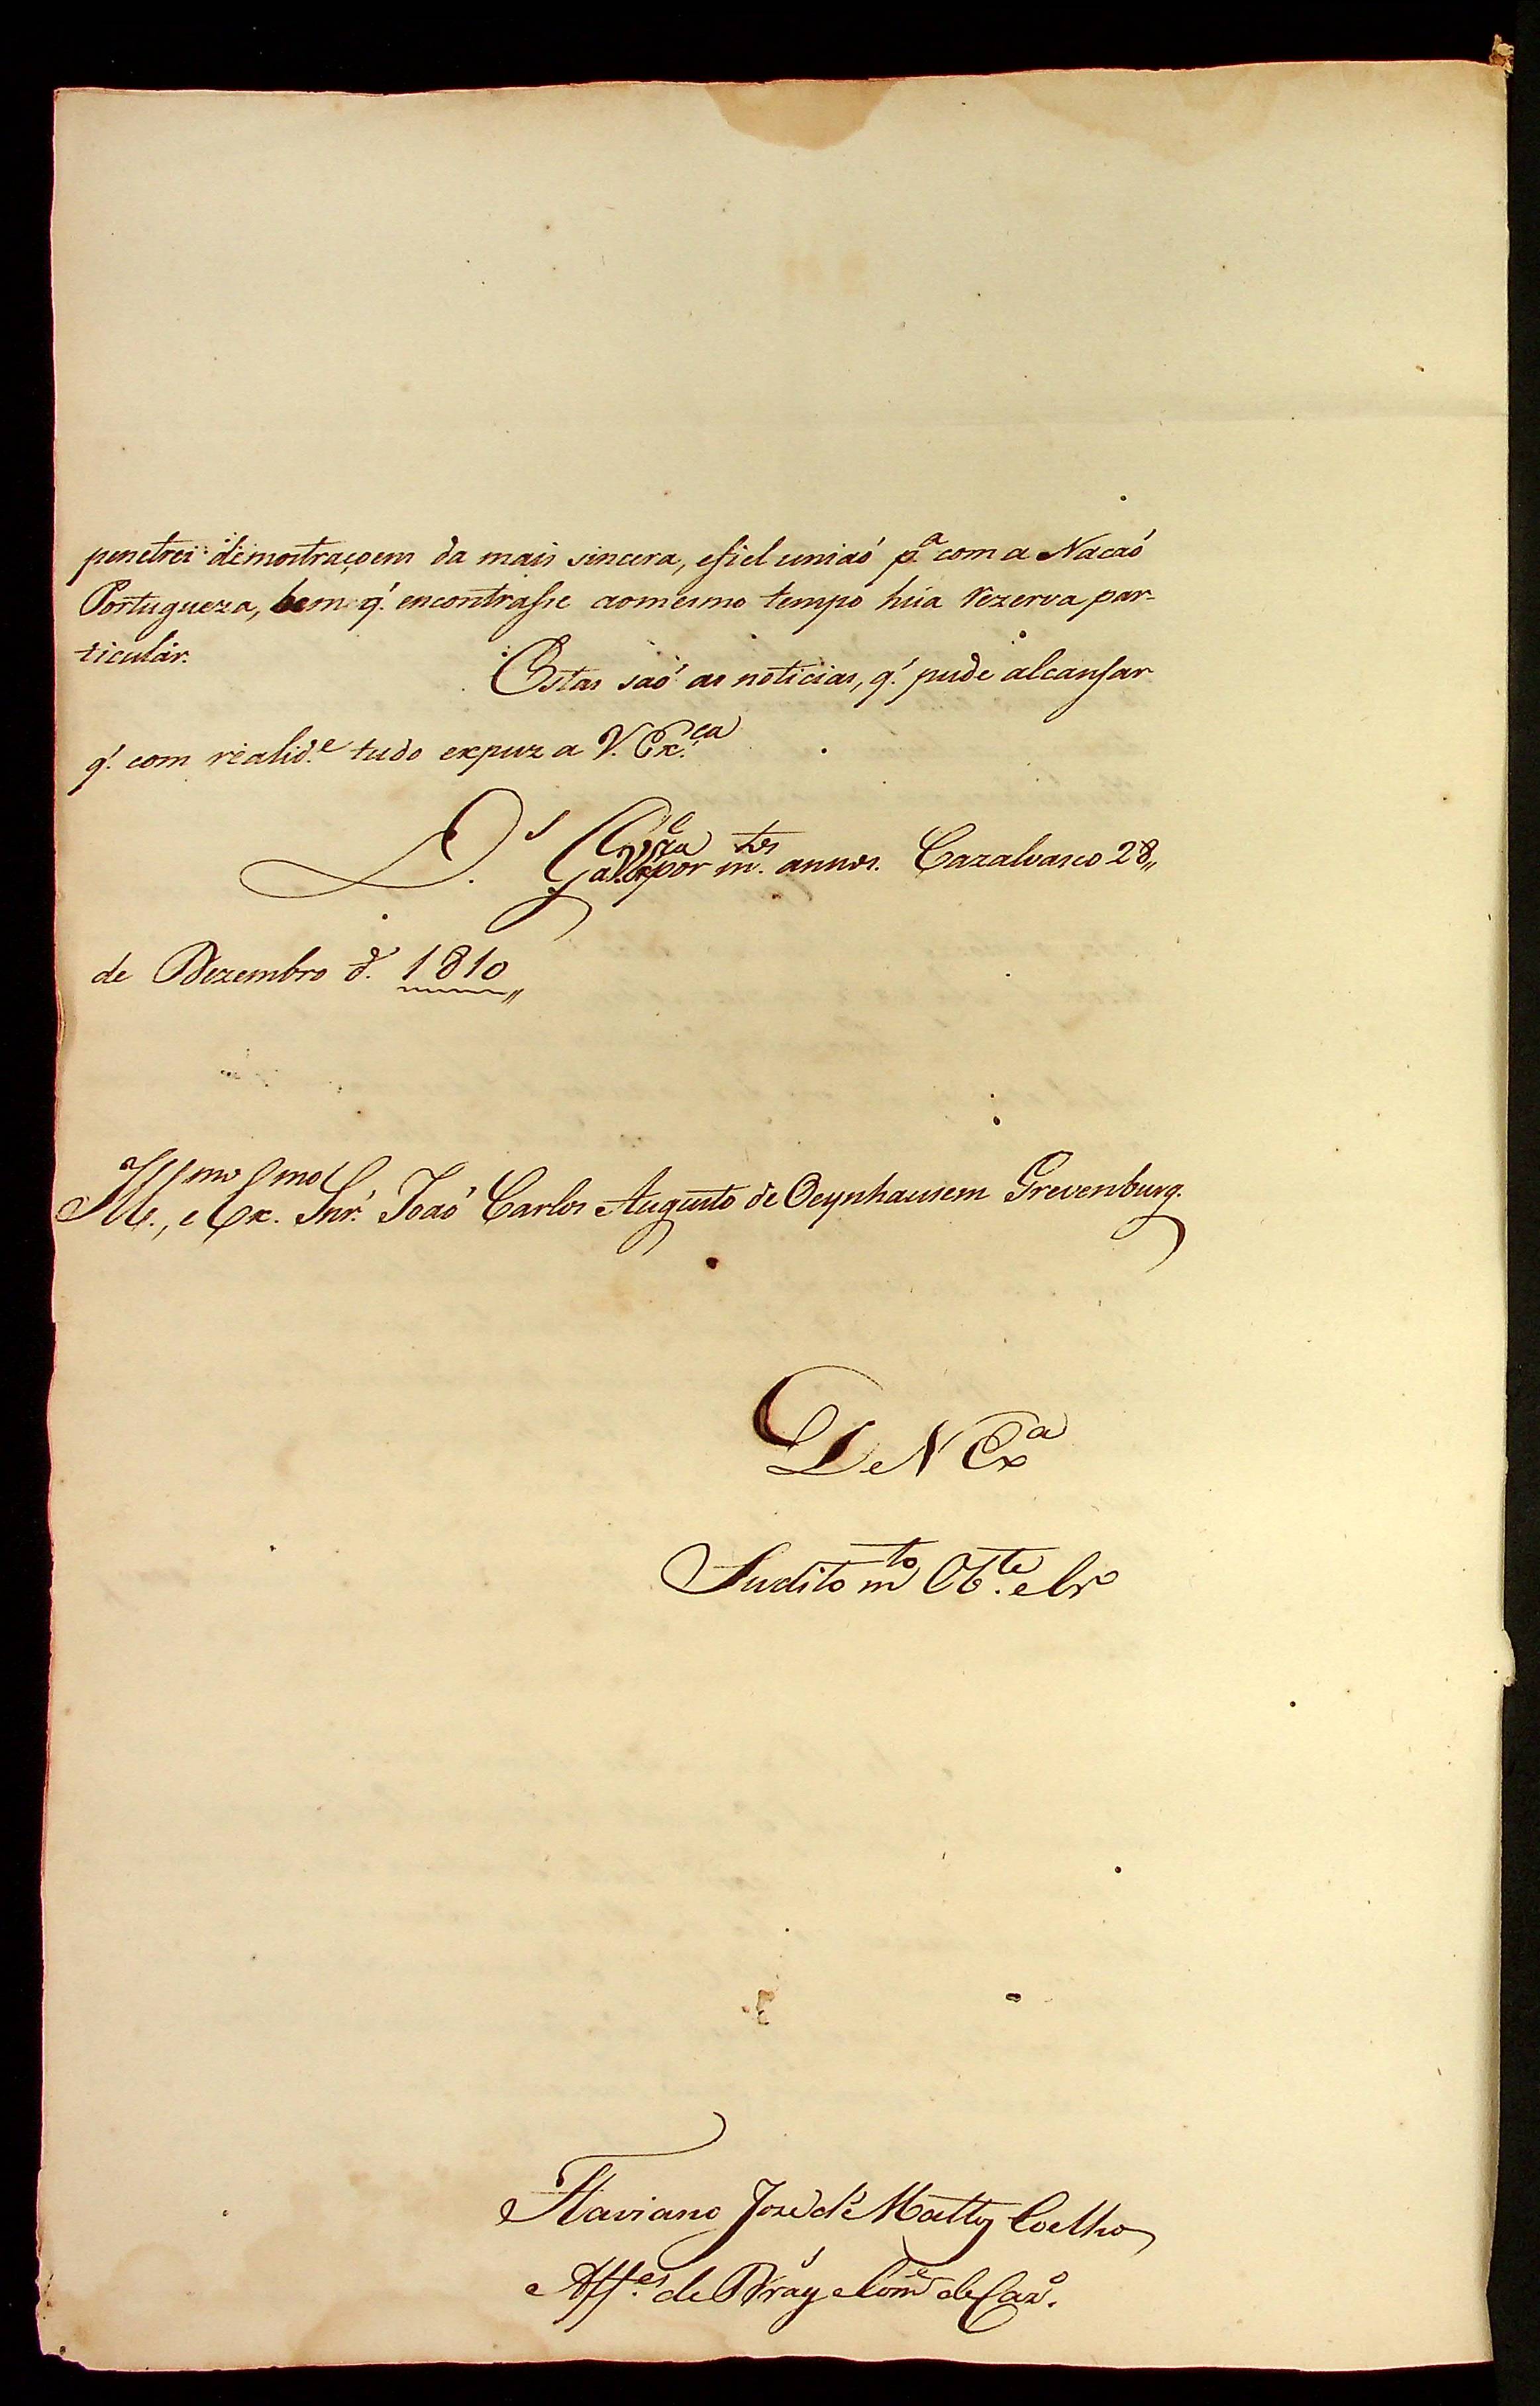 penetrei demostraçoens da mais sincera, efiel uniaó p.ª com a Nacaó
Portugueza, bem q.' encontrasse aomesmo tempo húa rezerva par-
ticular.
Estas saó as noticias, q.' pude alcansar
q.' com realid.e tudo expuz a V. Ex.cia
D.s G.e a V. Ex.cia por m.tos annos. Cazalvasco 28,,
de Dezembro d.' 1810,,
Ill.mo, e Ex.mo Snr.' Joaó Carlos Augusto de Oeynhausem Grevenburg.
De V Ex.a
Sudito m.to Ob.te e Cr.o
Flaviano Joze de Mattos Coelho
Alf.es de Drag.s e Com.e de Caz.o.